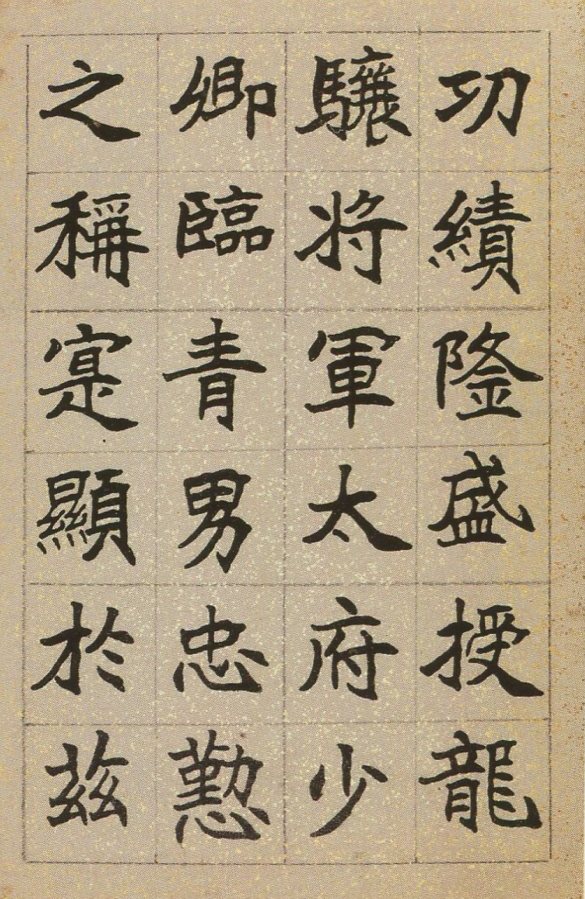 功績隆盛授龍
驤將軍太府少
卿臨青男忠懃
之稱寔顯於茲